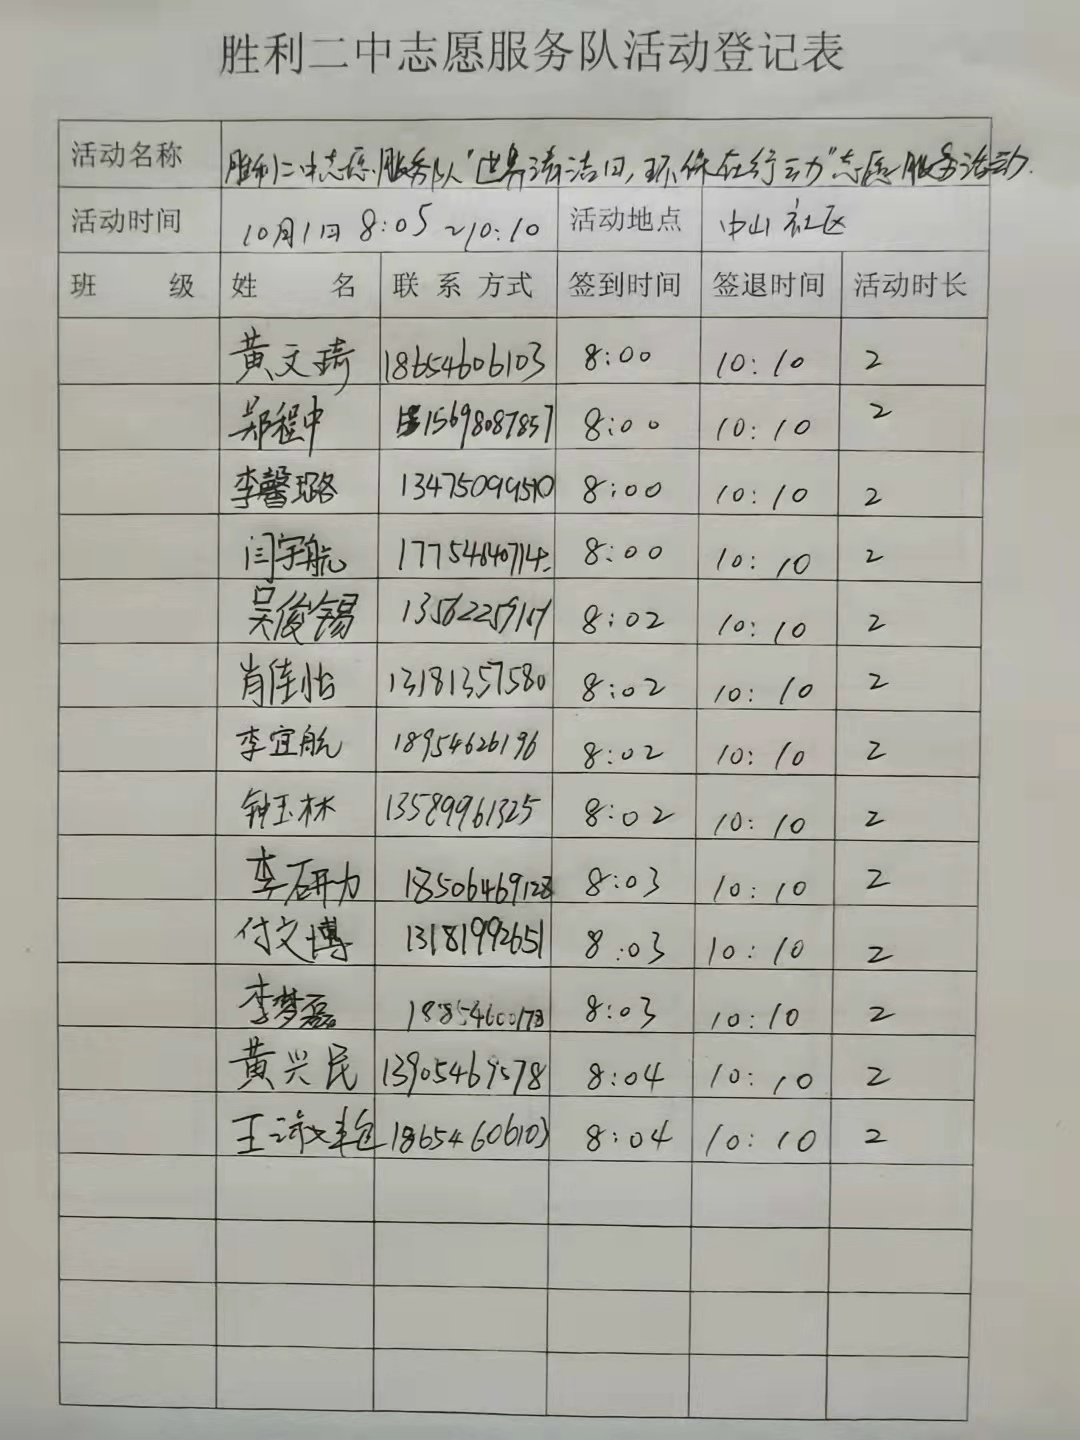 胜利二中志愿服务队活动登记表
活动名称 胜利二中志愿服务队"世界清洁日,环保在行动"志愿服务活动.
活动时间 10月1日 8:05~10:10 活动地点 中山社区
班 级 姓 名 联 系 方式 签到时间 签退时间 活动时长
黄文琦 18654606103 8:00 10:10 2
郑程中 15698087857 8:00 10:10 2
李馨璐 13475099510 8:00 10:10 2
闫宇航 17754640714 8:00 10:10 2
吴俊锡 8:02 10:10 2
肖佳怡 13181357580 8:02 10:10 2
李宜航 18954626196 8:02 10:10 2
钟玉林 13589961325 8:02 10:10 2
李 18506469128 8:03 10:10 2
付文博 13181992651 8:03 10:10 2
李梦磊 18854600178 8:03 10:10 2
黄兴民 13905469578 8:04 10:10 2
王 18654606103 8:04 10:10 2